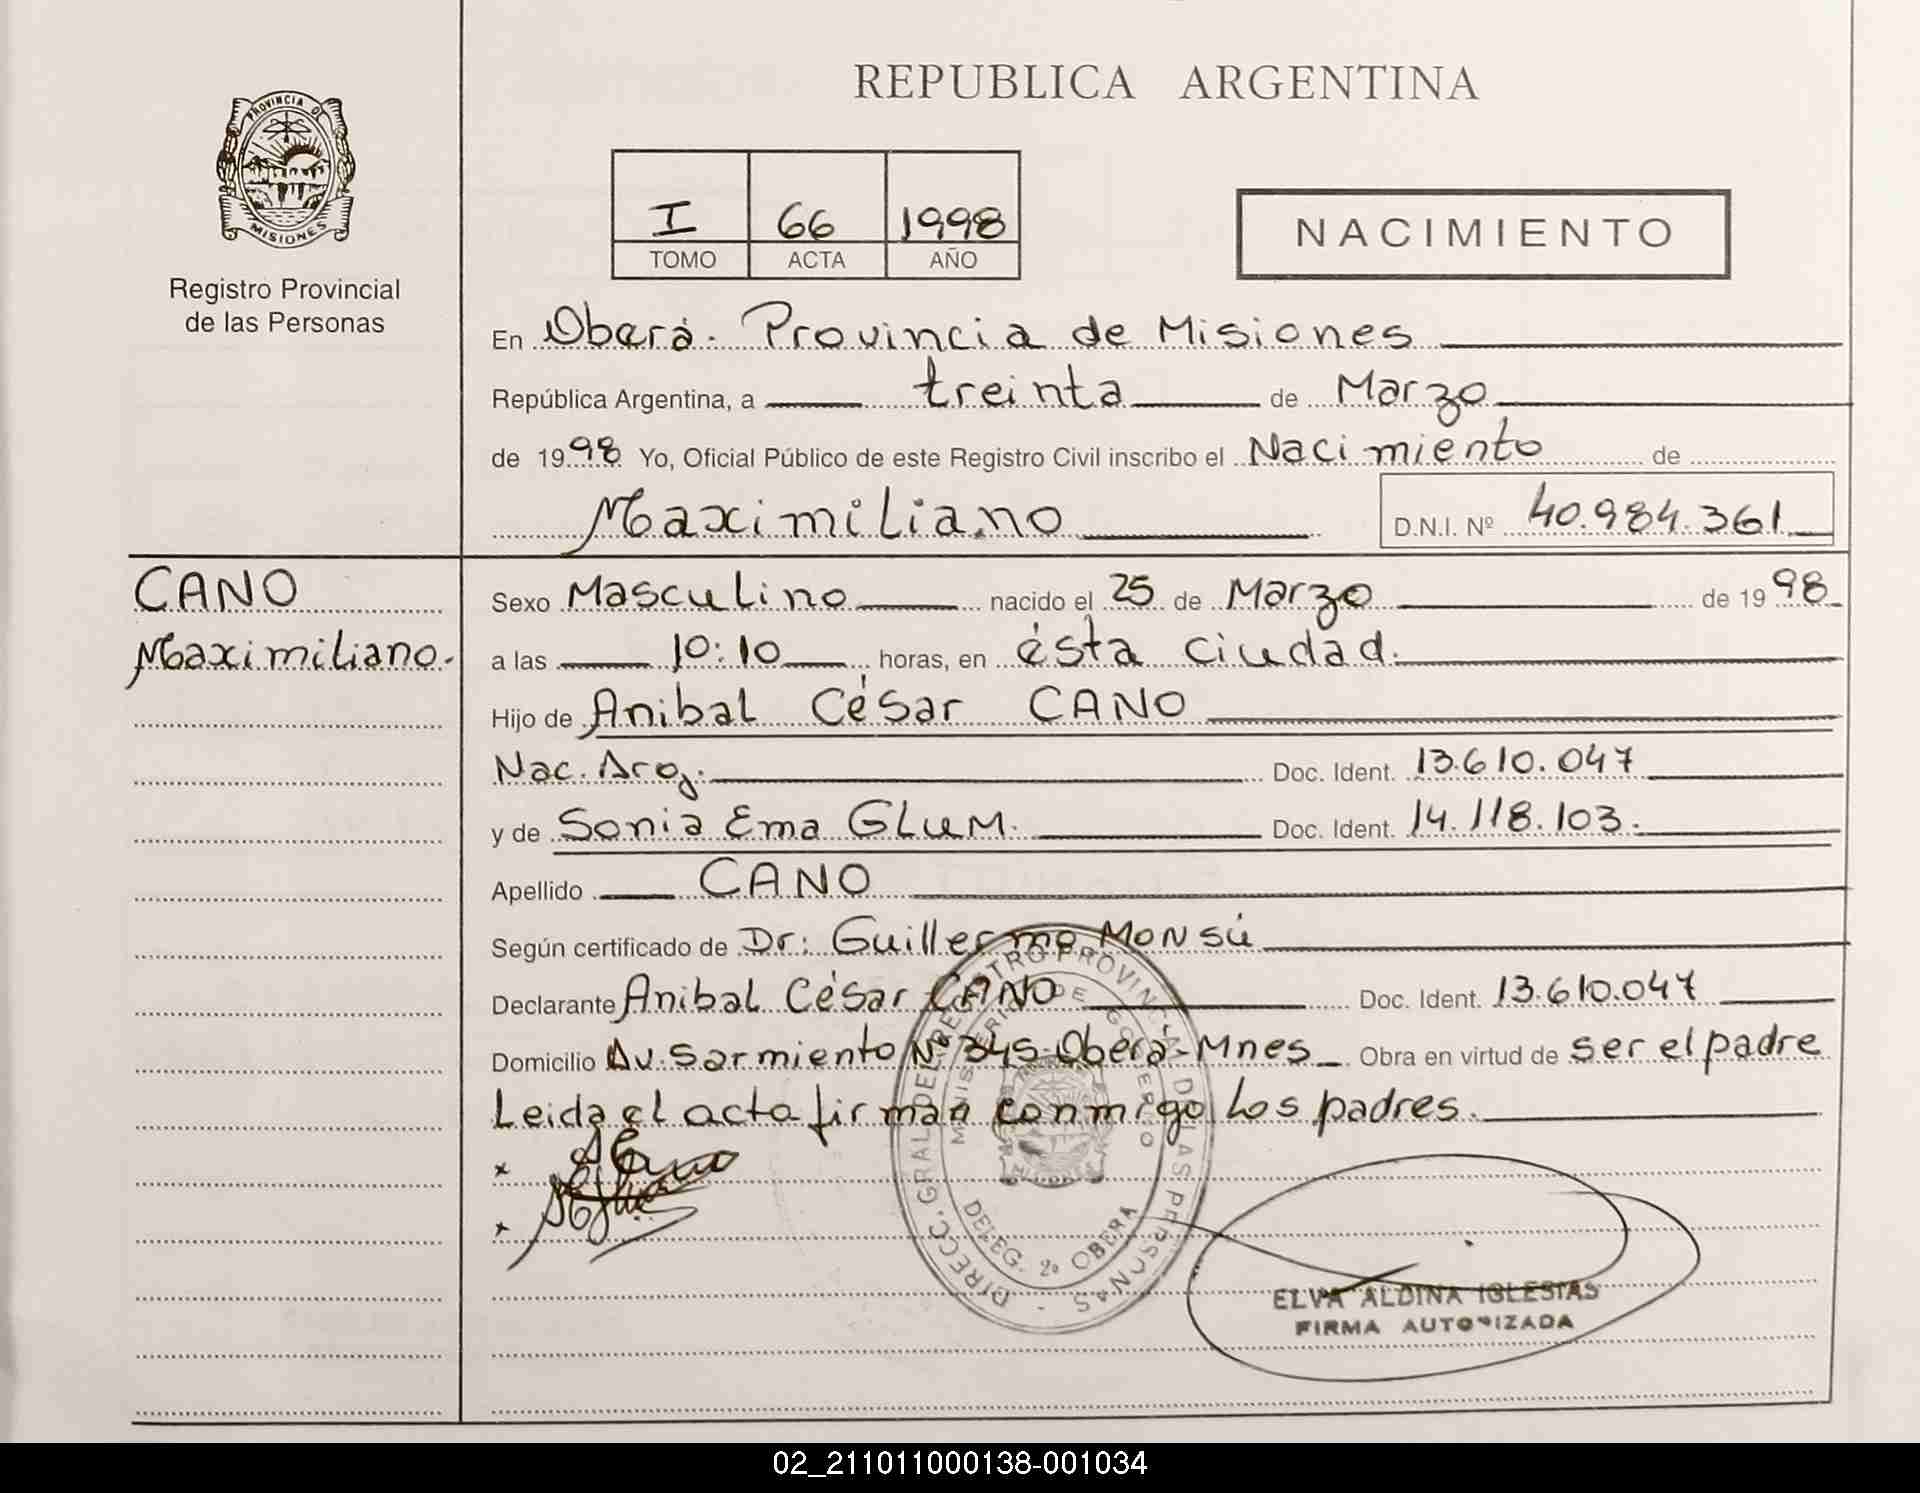 REPUBLICA ARGENTINA
PROVINCIA DE
MISIONES
Registro Provincial
de las Personas
I 66 1998
TOMO ACTA AÑO
NACIMIENTO
En Oberá. Provincia de Misiones
República Argentina, a treinta de Marzo
de 1998 Yo, Oficial Público de este Registro Civil inscribo el Nacimiento de
Maximiliano D.N.I. Nº 40.984.361
CANO
Maximiliano.
Sexo Masculino nacido el 25 de Marzo de 1998
a las 10:10 horas, en ésta ciudad.
Hijo de Anibal César CANO
Nac. Arg. Doc. Ident. 13.610.047
y de Sonia Ema GLUM. Doc. Ident. 14.118.103.
Apellido CANO
Según certificado de Dr: Guillermo MONSÚ
Declarante Anibal César CANO Doc. Ident. 13.610.047
Domicilio Av. Sarmiento Nº 345-Oberá-Mnes Obra en virtud de ser el padre
Leida el acta firman conmigo los padres.
DIRECC. GRAL. DEL REGISTRO PROVINCIAL DE LAS PERSONAS
MINISTERIO DE GOBIERNO
DELEG. 2º OBERA
ELVA ALDINA IGLESIAS
FIRMA AUTORIZADA
02_211011000138-001034